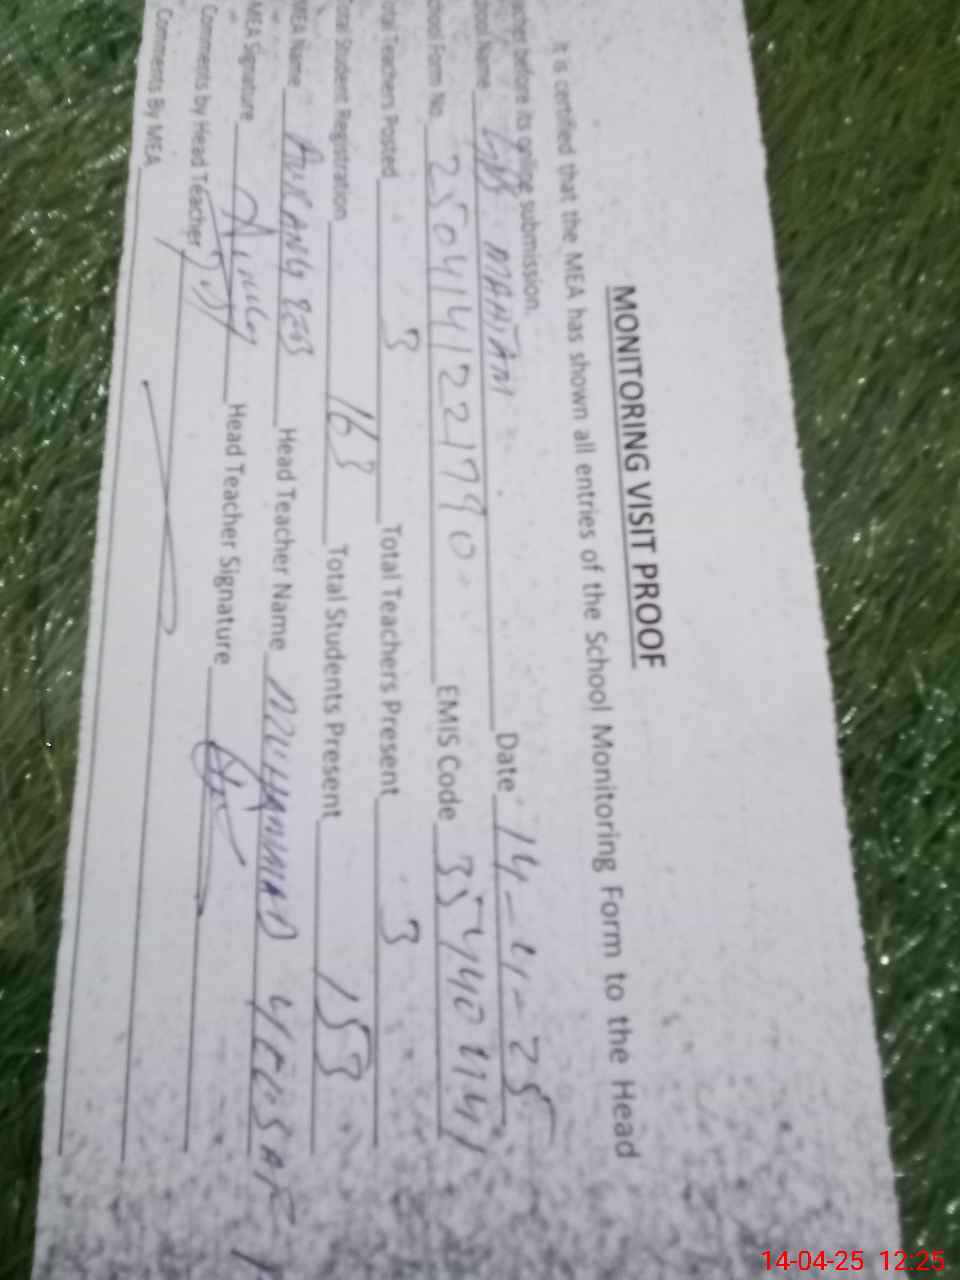 MONITORING VISIT PROOF
It is certified that the MEA has shown all entries of the School Monitoring Form to the Head
before its online submission.
Name Date 14-4-25
School Form No 2504141221790 EMIS Code 35440414
Total Teachers Posted 3 Total Teachers Present 3
Total Student Registration 163 Total Students Present 153
MEA Name AURANGZEB Head Teacher Name MUHAMMAD YOUSAF
MEA Signature Head Teacher Signature
Comments by Head Teacher
Comments By MEA
14-04-25 12:25